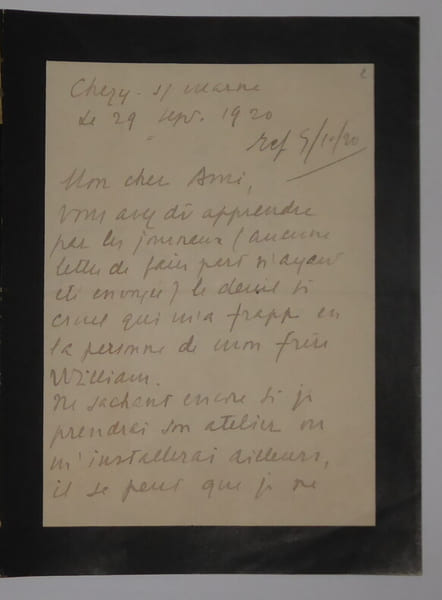 2
Chezy - s/ Marne
Le 29 Sept. 1920
Rep 5/10/20
Mon cher Ami,
Vous avez dû apprendre
par les journaux (aucune
lettre de faire part n'ayant
été envoyée) le deuil si
cruel qui m'a frappé en
la personne de mon frère
William.
Ne sachant encore si je
prendrai son atelier ou
m'installerai ailleurs,
il se peut que je ne